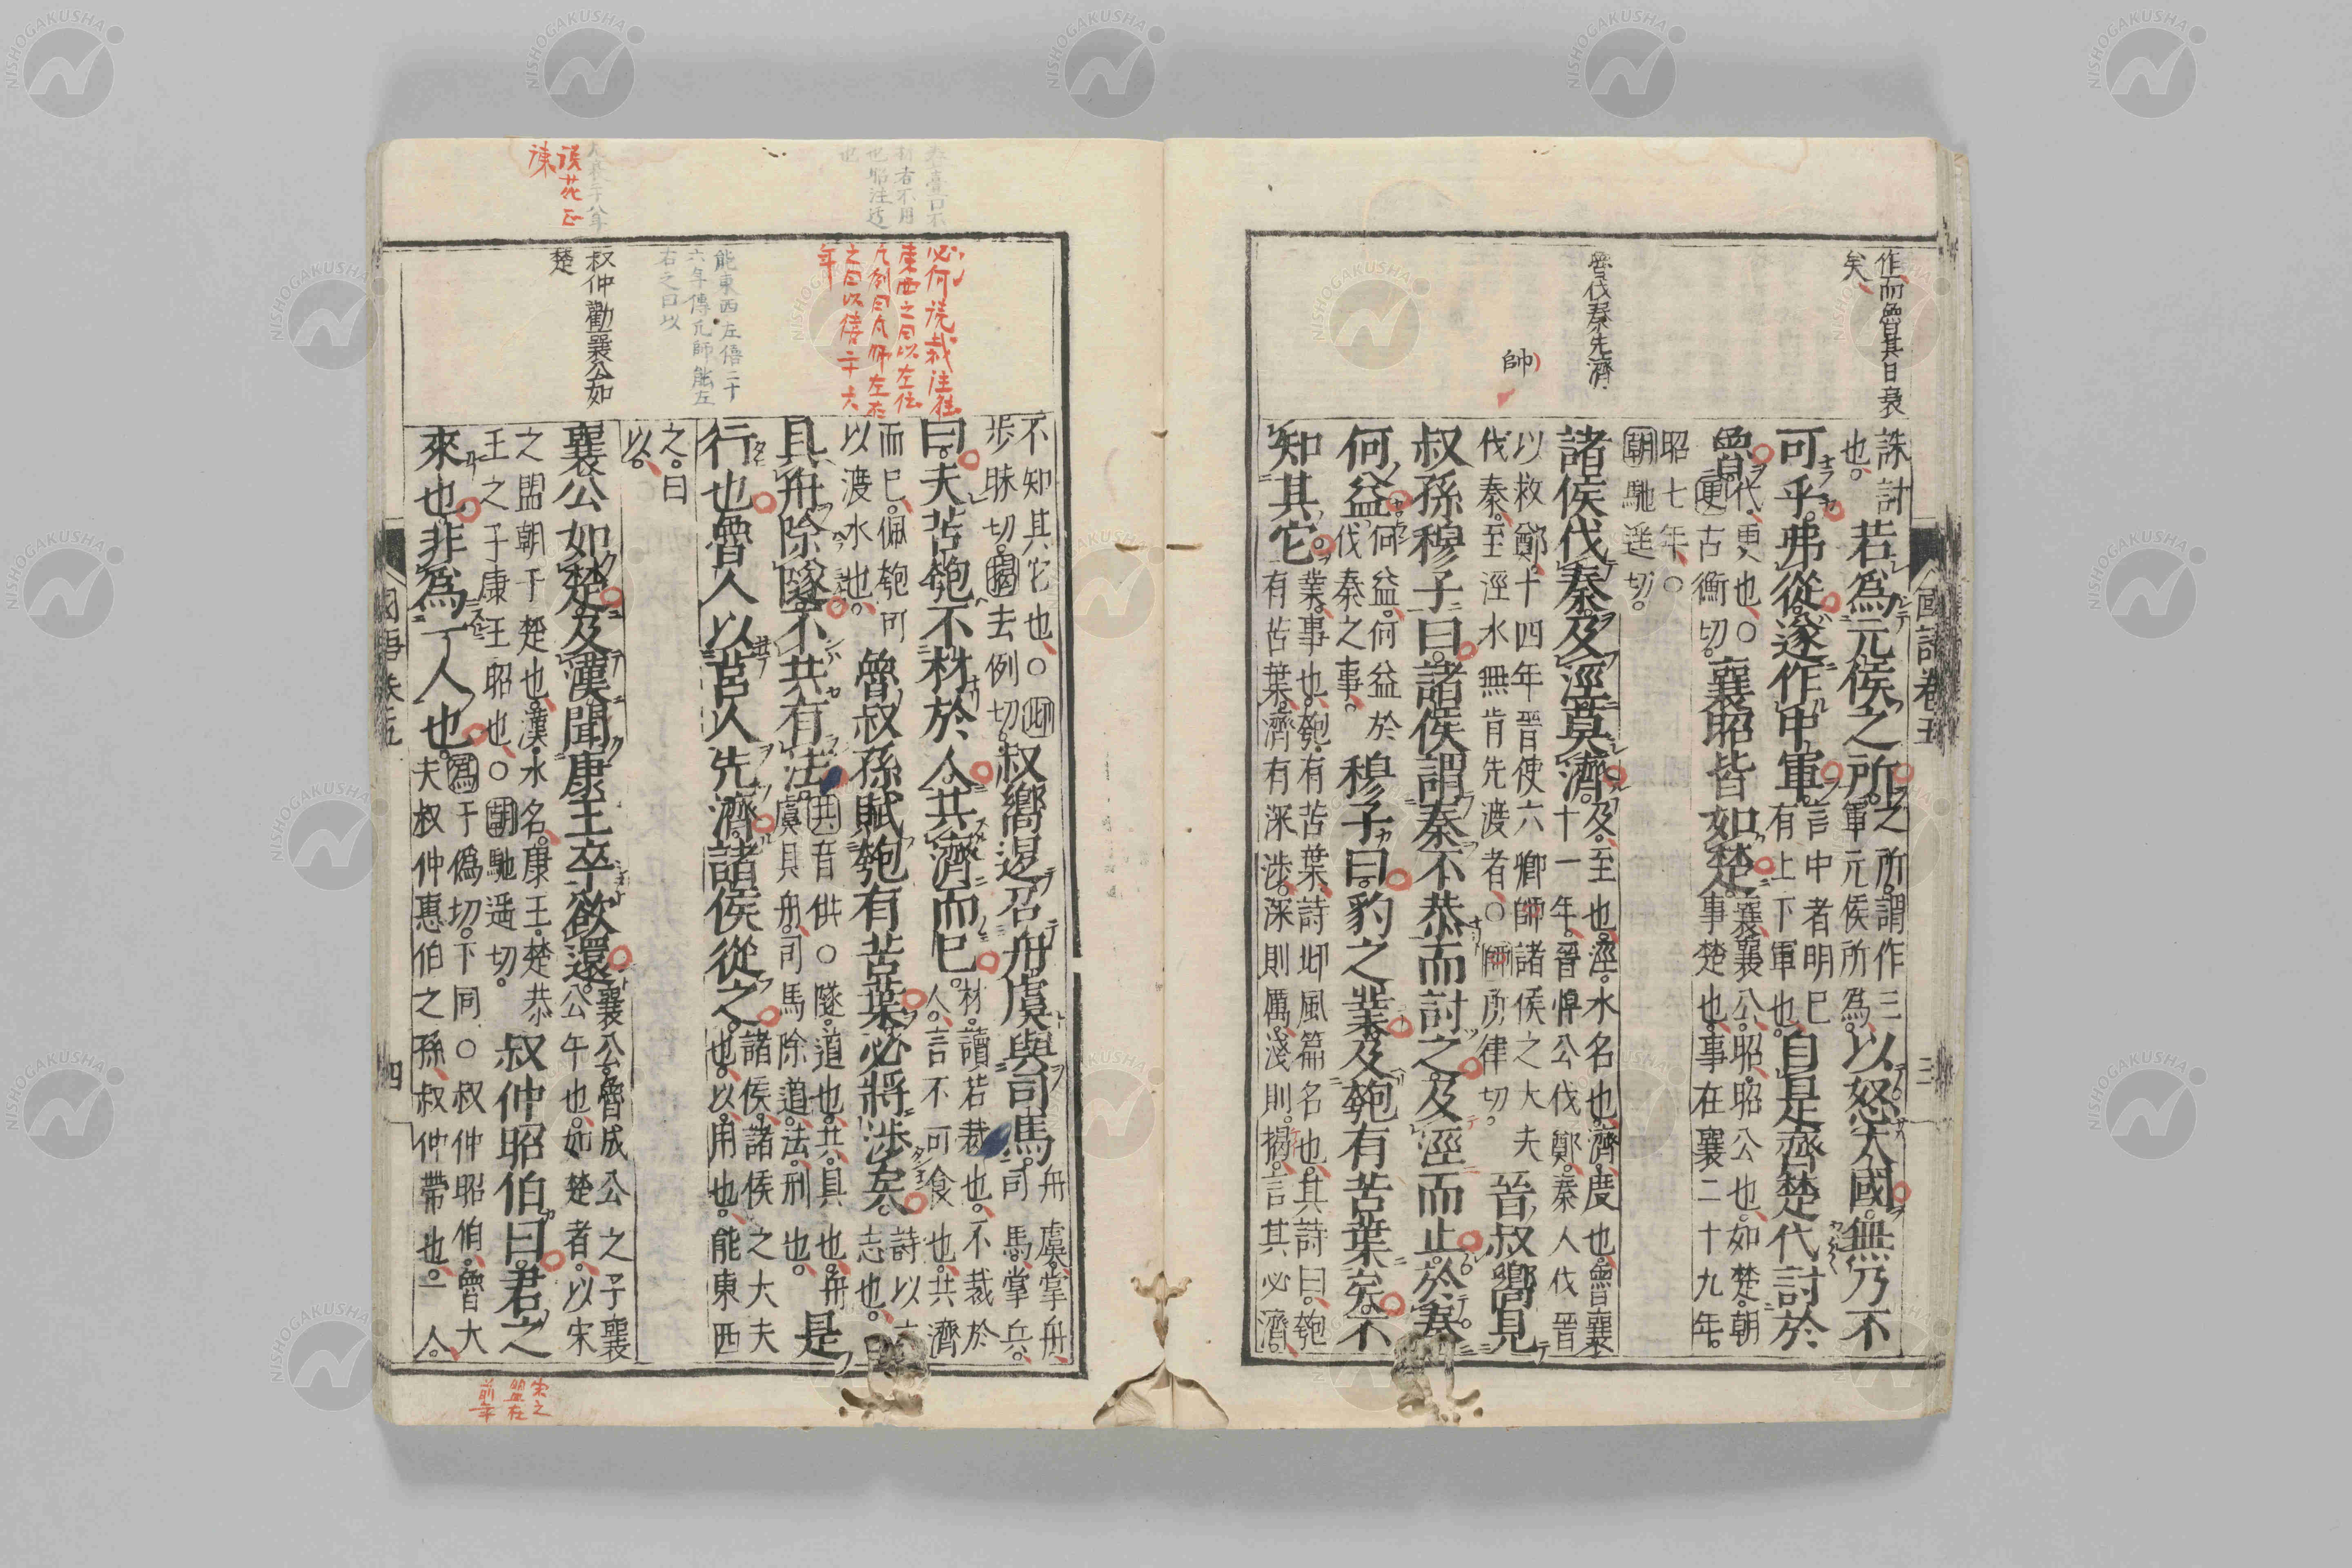 作而魯其日衰
矣
魯伐秦先濟
帥
國語卷五
三
誅討
也。若爲元侯之所。之所。謂作三
軍元侯所爲。以怒大國。無乃不
可乎。弗從。遂作中軍。言中者明已
有上下軍也。自是齊楚代討於
魯。代。更也。○
更古衡切。襄昭皆如楚。襄襄公。昭昭公也。如楚。朝
事楚也。事在襄二十九年。
昭七年。○
朝馳遥切。
諸侯伐秦。及涇莫濟。及。至也。涇。水名也。濟。度也。魯襄
十一年。晉悼公伐鄭。秦人伐晉
以救鄭。十四年晉使六卿師諸侯之大夫
伐秦。至涇水無肯先渡者。○師所律切。晉叔嚮見
叔孫穆子曰。諸侯謂秦不恭而討之。及涇而止。於秦
何益。何益。何益於
伐秦之事。穆子曰。豹之業。及匏有苦葉矣。不
知其它。業。事也。匏有苦葉。詩邶風篇名也。其詩曰。匏
有苦葉。濟有深涉。深則厲。淺則揭。言其必濟。
不知其它也。○邶
步昧切。揭去例切。叔嚮退。召舟虞與司馬。舟虞。掌舟。
司馬。掌兵。
曰。夫苦匏不材於人。共濟而已。材。讀若裁也。不裁於
人。言不可食也。共濟
而已。佩匏可
以渡水也。魯叔孫賦匏有苦葉。必將涉矣。詩以言
志也。
具舟除隧。不共有法。共音供○隧。道也。共。具也。舟
虞具舟。司馬除道。法。刑也。是
行也。魯人以莒人先濟。諸侯從之。諸侯。諸侯之大夫
也。以。用也。能東西
之。曰
以。
襄公如楚。及漢。聞康王卒。欲還。襄公。魯成公之子襄
公午也。如楚者。以宋
之盟朝于楚也。漢。水名。康王。楚恭
王之子康王昭也。○朝馳遥切。叔仲昭伯曰。君之
來也。非爲一人也。爲于僞切。下同。○叔仲昭伯。魯大
夫叔仲惠伯之孫。叔仲帶也。一人。
必何説裁注往
東西之曰以左
凡例曰凡師左右
之曰以僖二十六
年
能東西左僖二十
六年傳凡師能左
右之曰以
叔仲勸襄公如
楚
四
宋之
盟在
前年